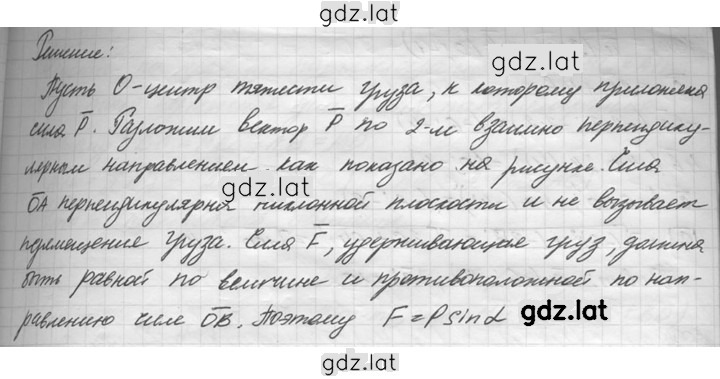 gdz.lat
Решение:
gdz.lat
Пусть О-центр тяжести груза, к которому приложена
сила P̅. Разложим вектор P̅ по 2-м взаимно перпендику-
лярным направлением как показано на рисунке. Сила
gdz.lat
O̅A̅ перпендикулярна наклонной плоскости и не вызывает
перемещение груза. Сила F̅, удерживающая груз, должна
быть равной по величине и противоположной по нап-
равлению силе O̅B̅. Поэтому F=Psinα
gdz.lat
gdz.lat